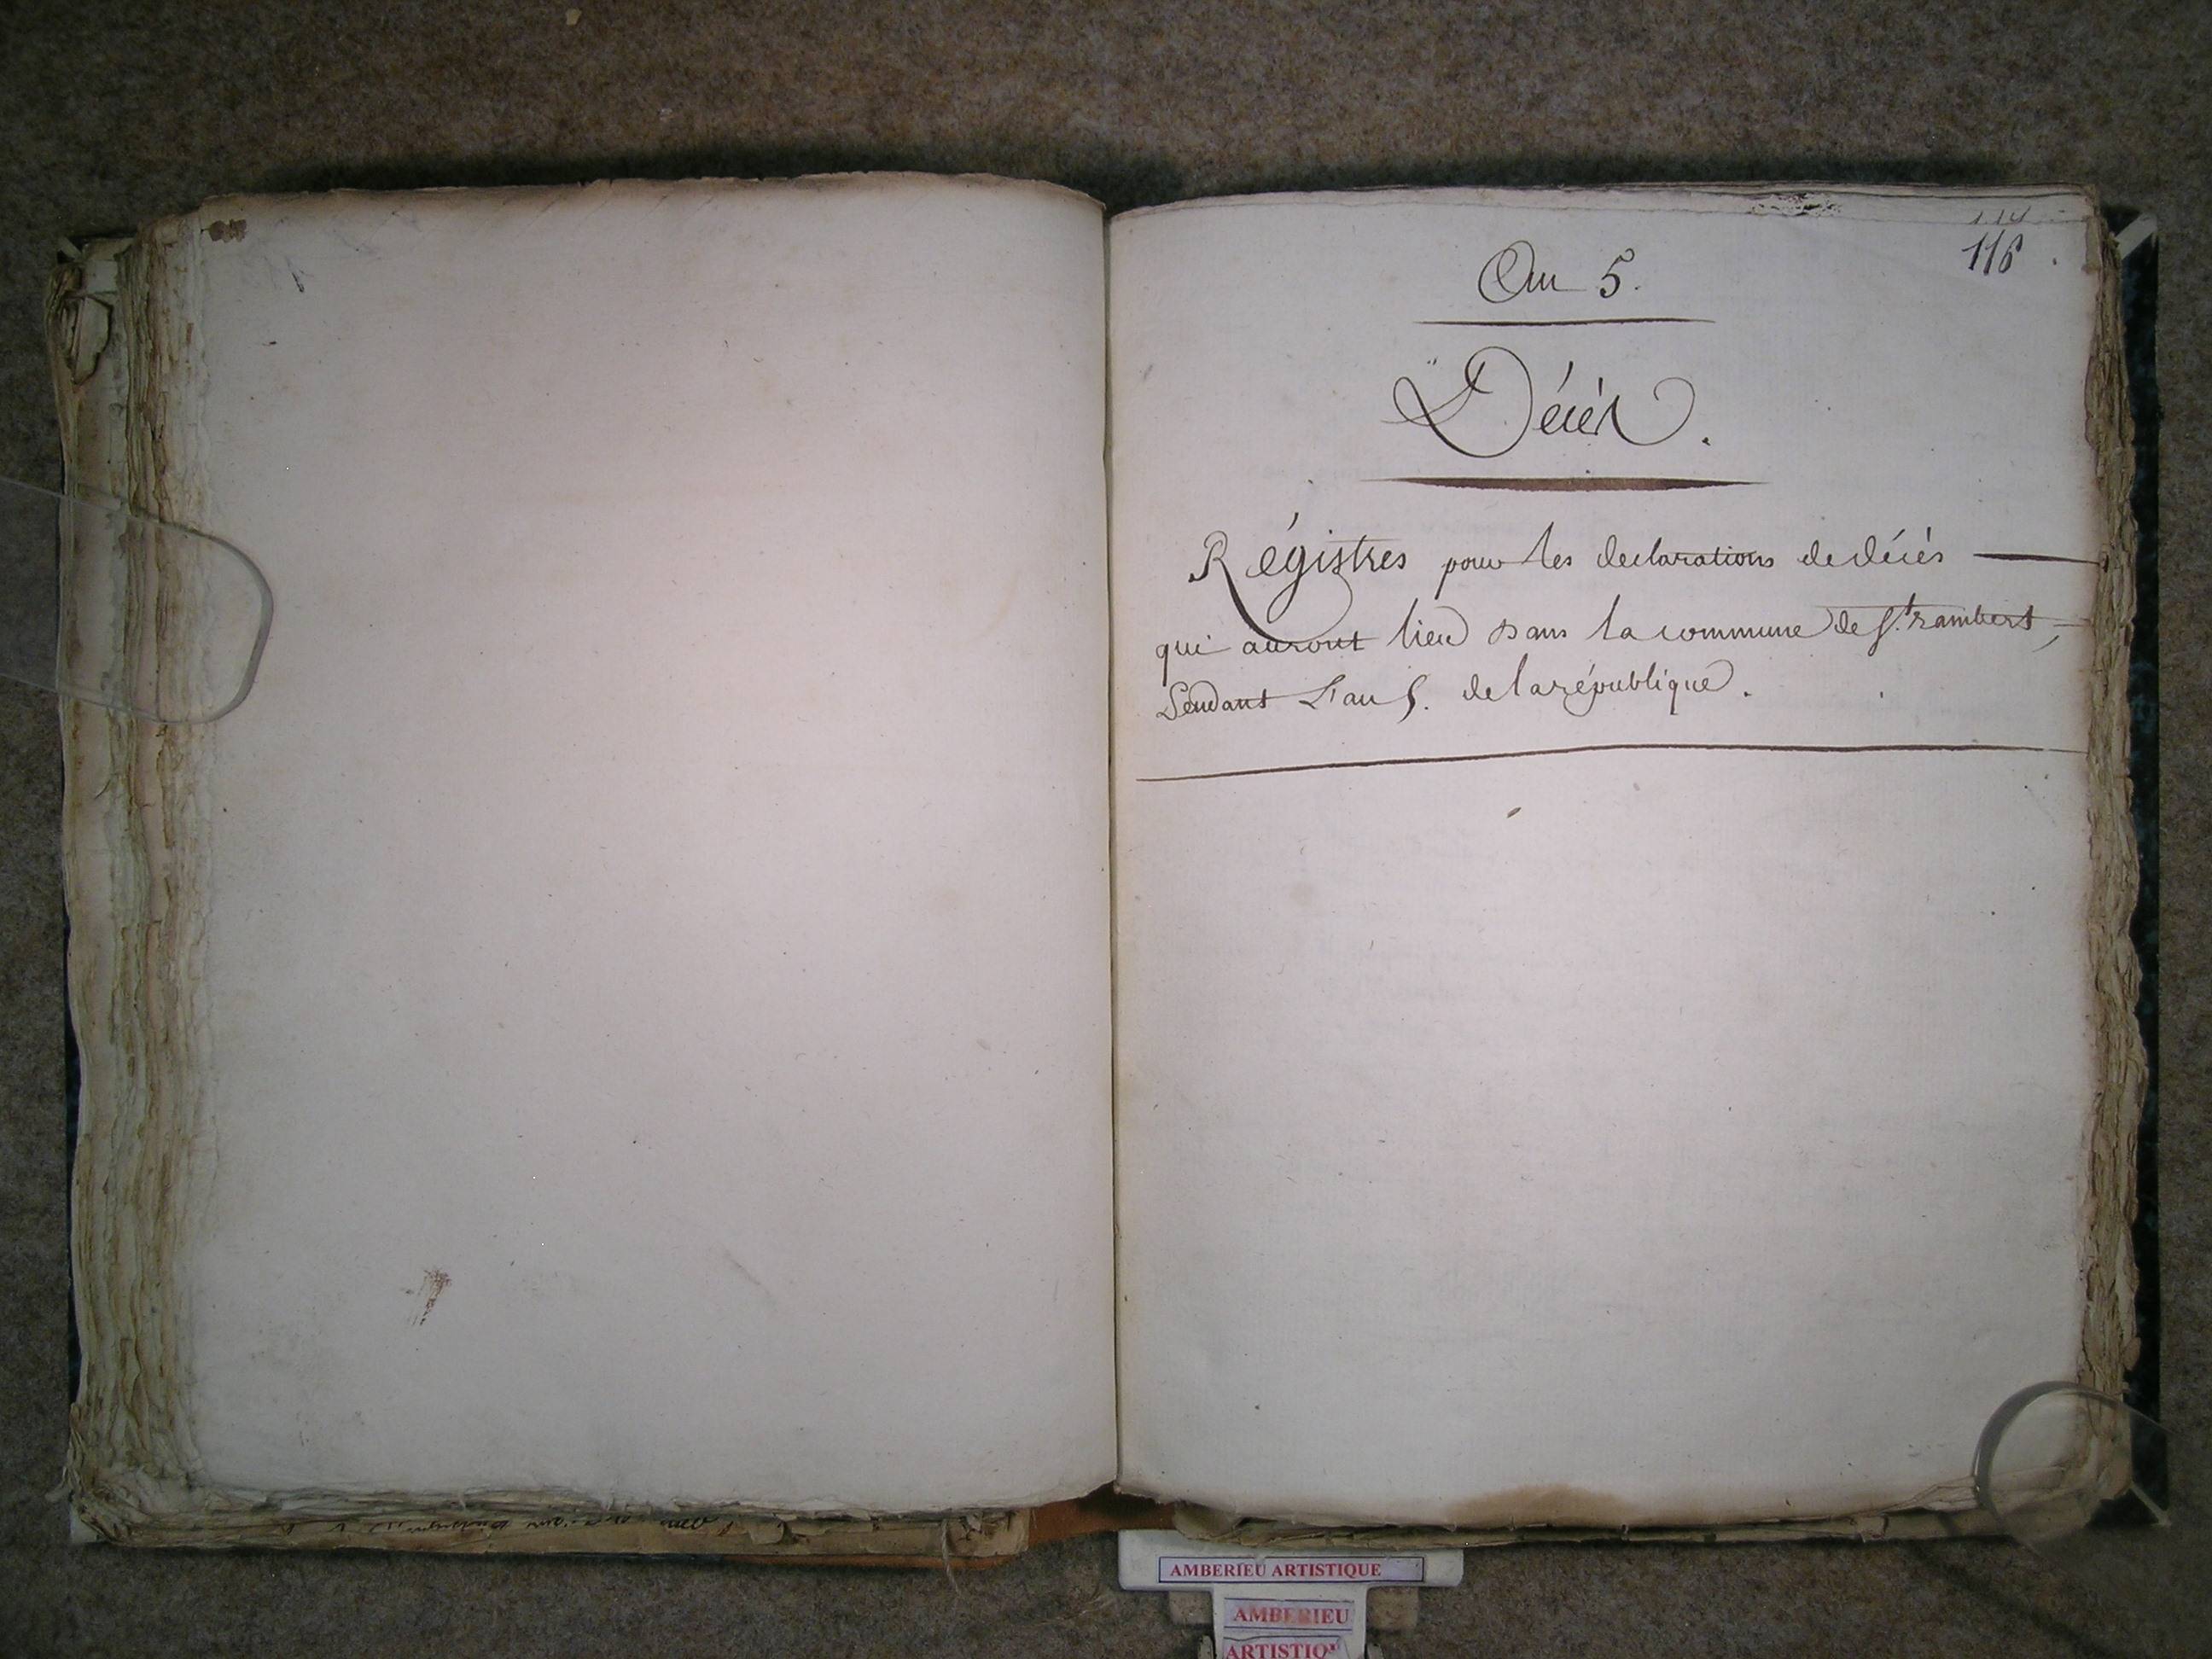 114
116
An 5.
Décès.
Régistres pour les declarations de décès
qui auront lieu dans la commune de St. rambert,
Pendant L'an 5. de la république.
AMBERIEU ARTISTIQUE
AMBERIEU
ARTISTIQ